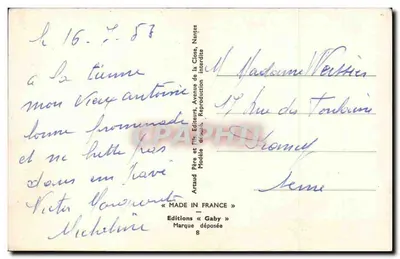 le 16.7.58
a la tienne
mon vieux antoine
bonne promenade
et ne butte pas
dans un pavé
Victor Marguerite
Micheline
Artaud Père et Fils Editeurs, Avenue de la Close, Nantes
Modèle déposé. Reproduction interdite
« MADE IN FRANCE »
Editions « Gaby »
Marque déposée
8
M Madame
17 rue des
Drancy
Seine